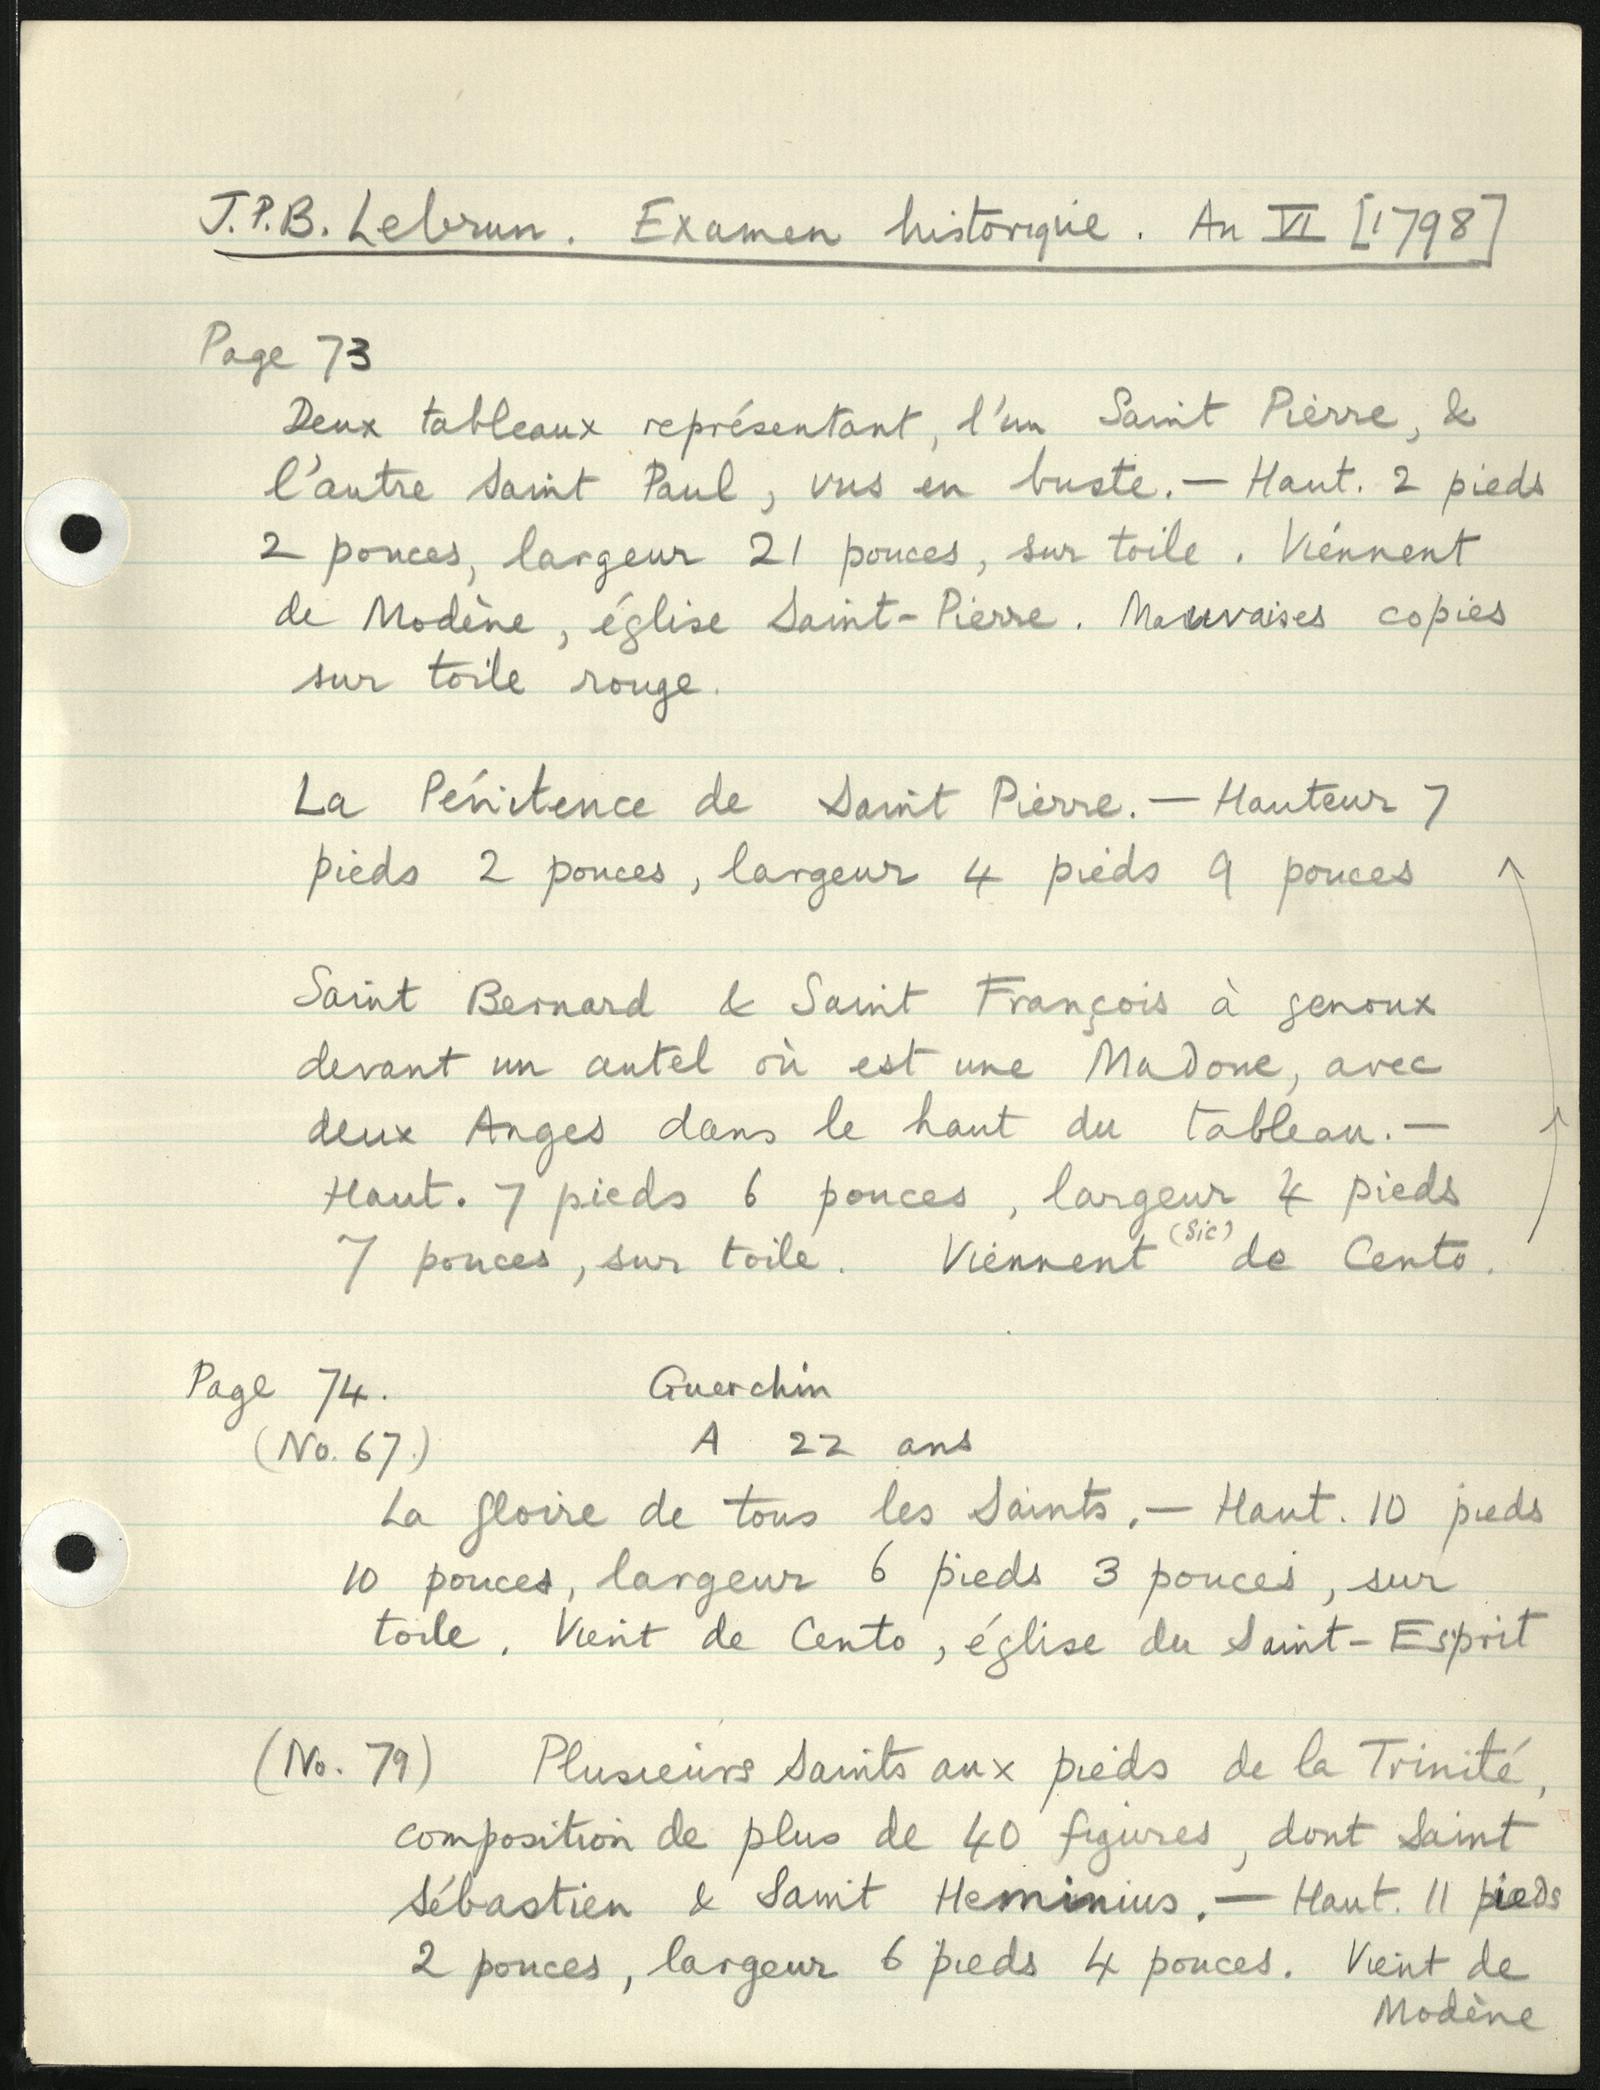 J.P.B. Lebrun. Examen historique. An VI [1798]
Page 73
Deux tableaux représentant, l'un Saint Pierre, &
l'autre Saint Paul, vus en buste. — Haut. 2 pieds
2 pouces, largeur 21 pouces, sur toile. Viennent
de Modène, église Saint-Pierre. Mauvaises copies
sur toile rouge.
La Pénitence de Saint Pierre. — Hauteur 7
pieds 2 pouces, largeur 4 pieds 9 pouces
Saint Bernard & Saint François à genoux
devant un autel où est une Madone, avec
deux Anges dans le haut du tableau. —
Haut. 7 pieds 6 pouces, largeur 4 pieds
7 pouces, sur toile. Viennent (sic) de Cento.
Page 74. Guerchin
(No. 67.) A 22 ans
La gloire de tous les Saints. — Haut. 10 pieds
10 pouces, largeur 6 pieds 3 pouces, sur
toile. Vient de Cento, église du Saint-Esprit
(No. 79) Plusieurs Saints aux pieds de la Trinité,
composition de plus de 40 figures, dont Saint
Sébastien & Saint Heminius. — Haut. 11 pieds
2 pouces, largeur 6 pieds 4 pouces. Vient de
Modène